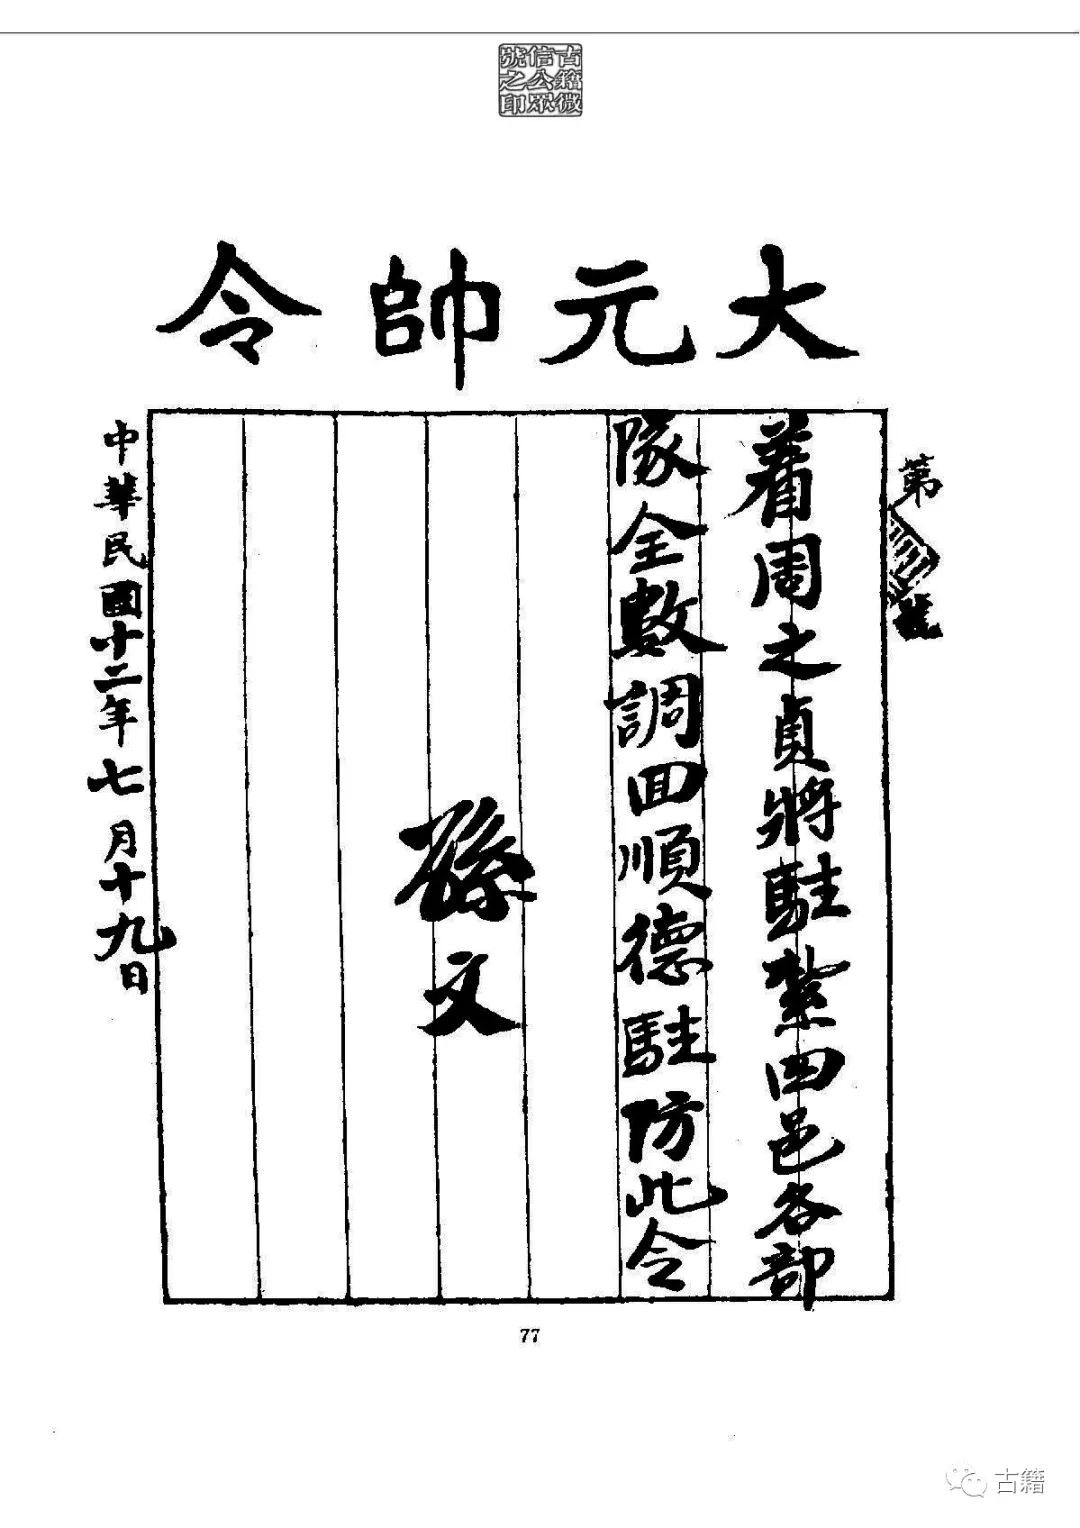 古籍微
信公眾
號之印
大元帥令
第
號
着周之貞將駐紮四邑各部
隊全數調回順德駐防此令
孫文
中華民國十二年七月十九日
77
古籍